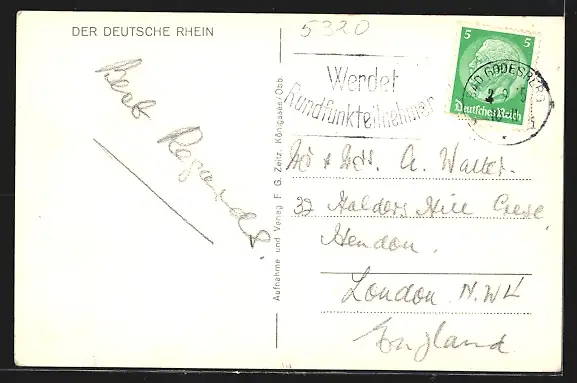 DER DEUTSCHE RHEIN
5320
Werdet
Rundfunkteilnehmer
5 5
Deutsches Reich
BAD GODESBERG
Best Regards.
Aufnahme und Verlag F. G. Zeitz, Königssee/Obb.
Mr & Mrs. A. Walter.
32 Holders Hill Cresc.
Hendon.
London. N.W.4
England